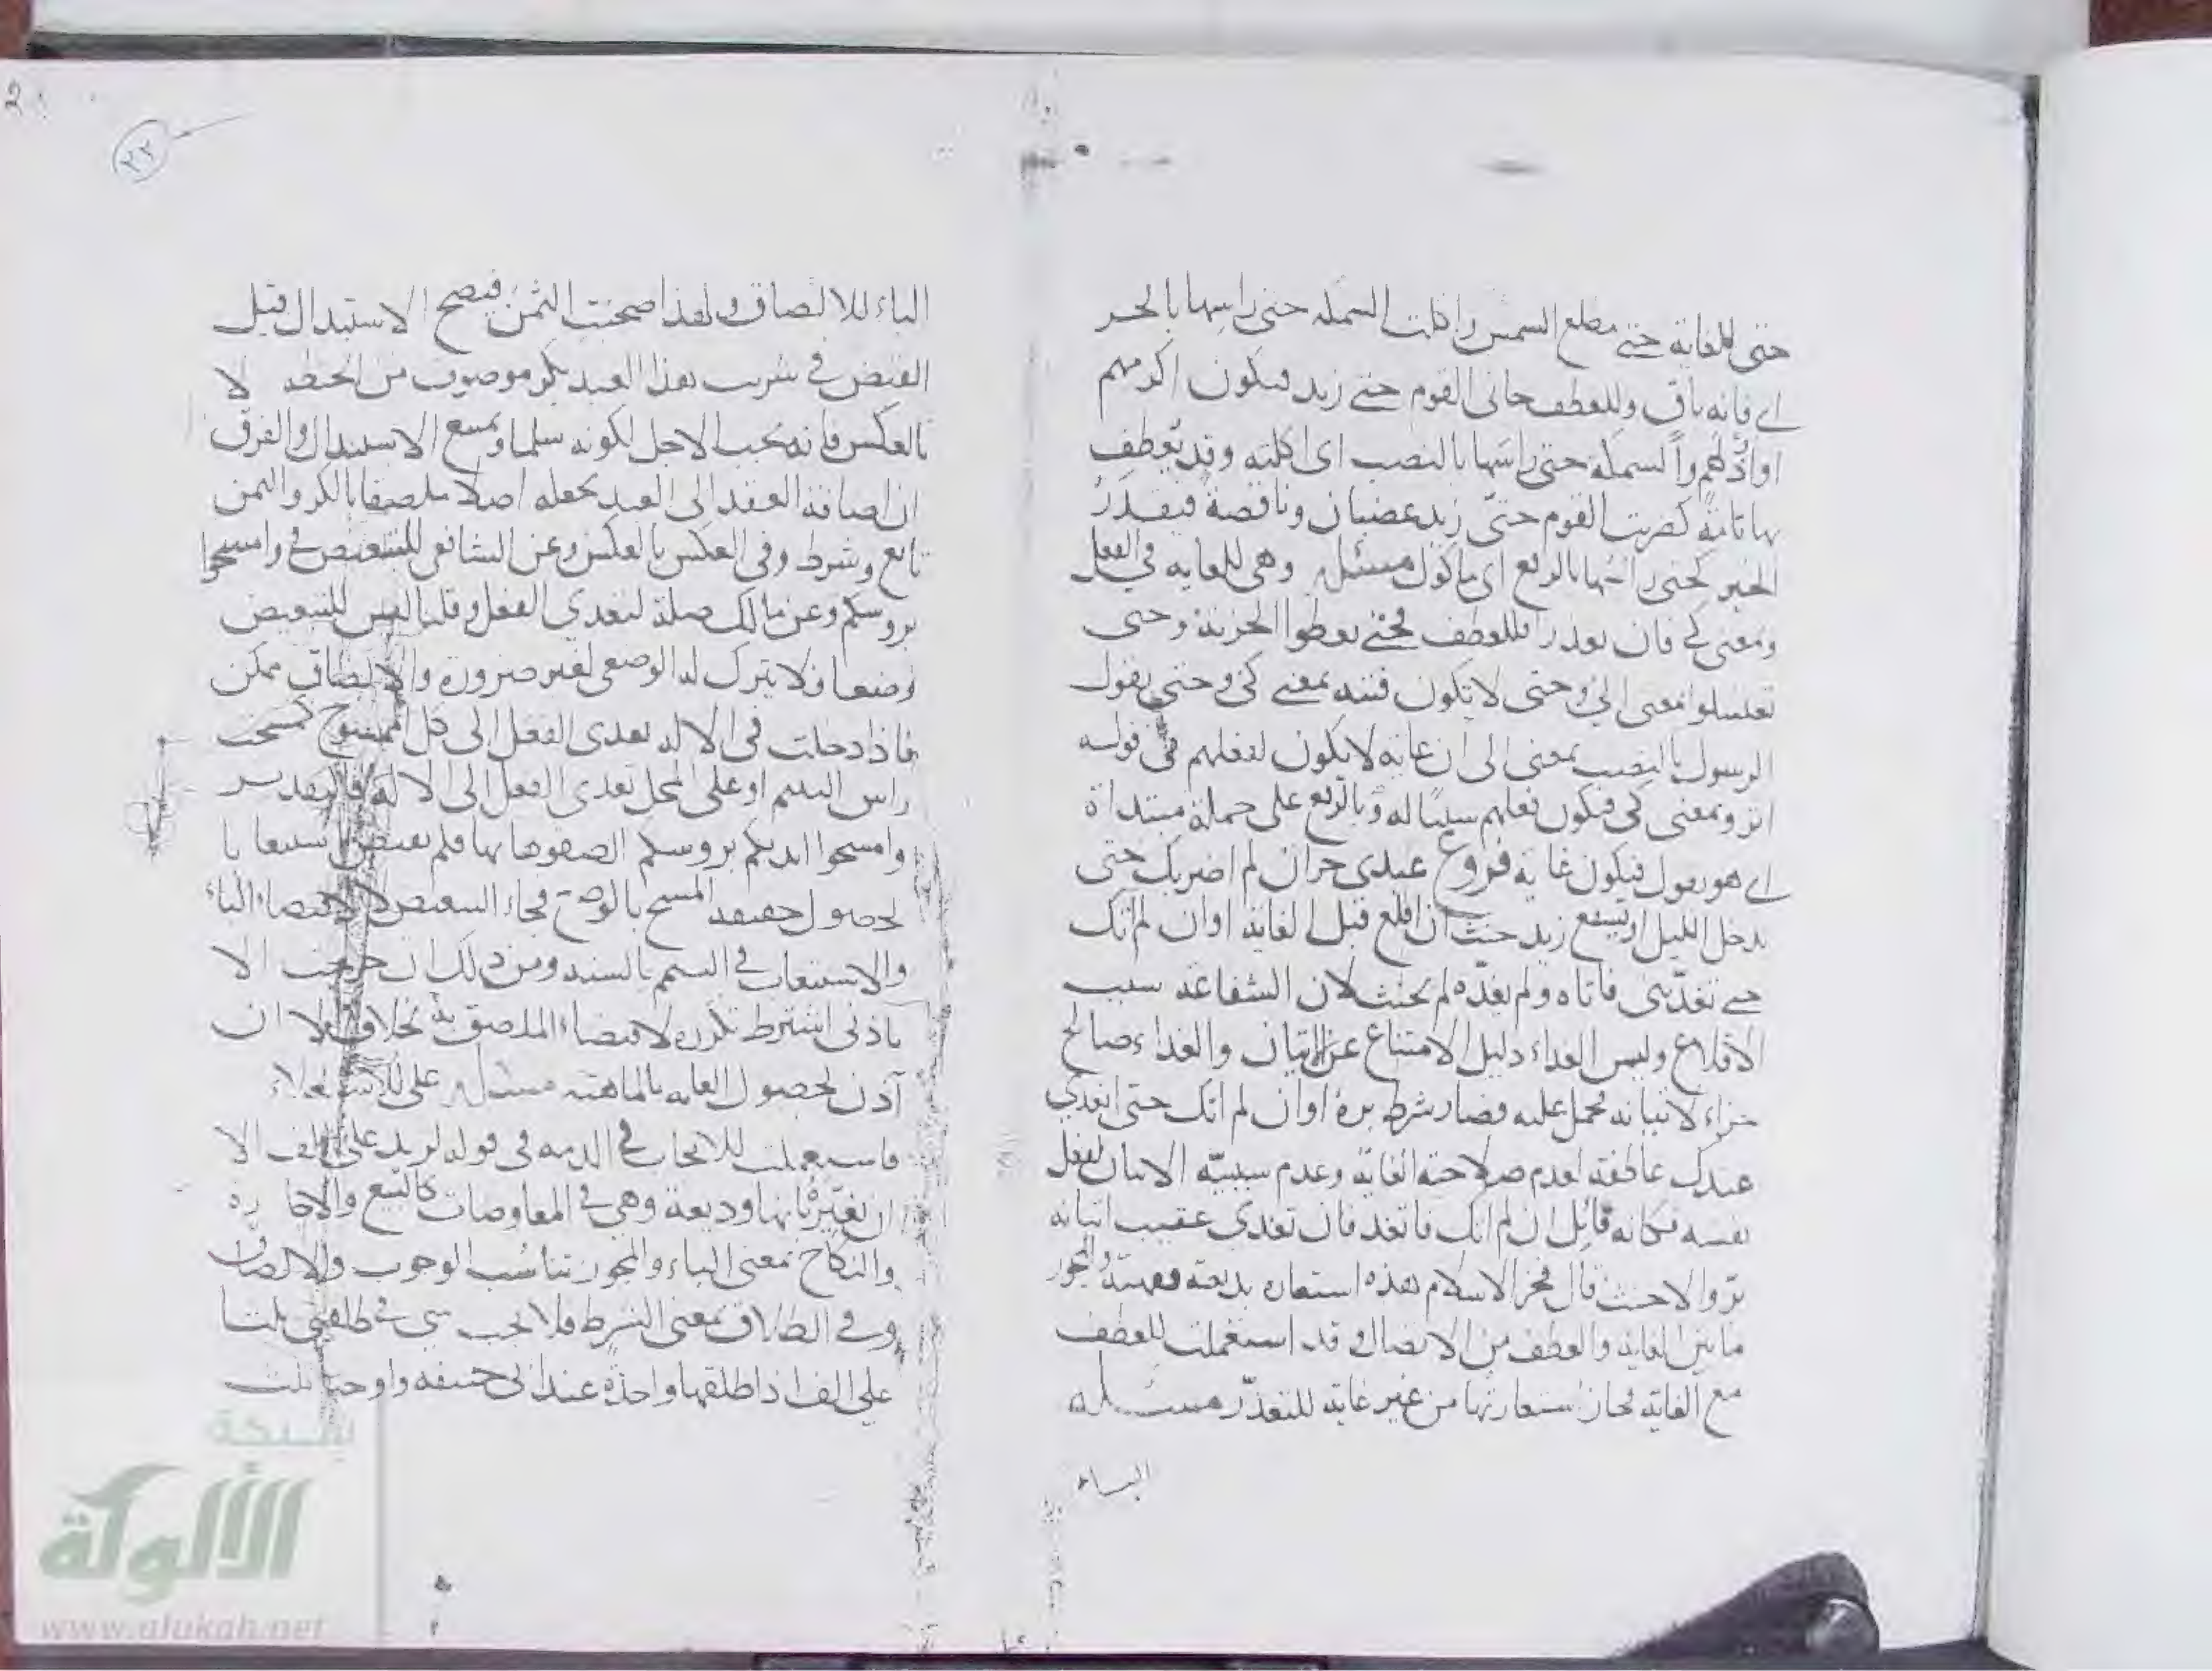 حتى للغاية حتى مطلع الشمس واكلت السمكة حتى راسها بالجر
اى فانه باق وللعطف جانى القوم حتى زيد فيكون اكرمهم
او ارذلهم والسمكة حتى راسها بالنصب اى اكلته وقد تعطف
بها تامة كضربت القوم حتى زيد غضبان وناقصة فيقدر
الخبر كحتى راسها بالرفع اى ماكول مسئلة وهى للغاية فى الفعل
وبمعنى كى فان تعذر فللعطف فحتى يعطوا الجزية وحتى
تغتسلوا بمعنى الى وحتى لا تكون فتنة بمعنى كى وحتى يقول
الرسول بالنصب بمعنى الى ان غاية لا يكون لفعلهم فى قوله
اثر وبمعنى كى فيكون فعلهم سببا له وبالرفع على جملة مبتداة
اى هو يقول فيكون غاية فروع عبدى حر ان لم اضربك حتى
يدخل الليل او يشفع زيد حنث ان اقلع قبل الغاية او ان لم اتك
حتى تغدينى فاتاه ولم يغده لم يحنث لان الشفاعة سبب
الاقلاع وليس الغداء دليل الامتناع عن الاتيان والغداء صالح
جزاء لاتيانه فحمل عليه فصار شرط بره او ان لم اتك حتى اتغدى
عندك عاطفة لعدم صلاحية الغاية وعدم سببية الاتيان لفعل
نفسه فكانه قائل ان لم اتك فاتغد فان تغدى عقيب اتيانه
بر والا حنث قال فخر الاسلام هذه استعارة بديعة والمجوز
ما بين الغاية والعطف من الاتصال وقد استعملت للعطف
مع الغاية فجاز استعارتها من غير غاية للتعذر مسئلة
الباء
٢٢
الباء للالصاق ولهذا صحبت الثمن فيصح الاستبدال قبل
القبض فى شريت هذا العبد بكر موصوف من الحنطة لا
بالعكس فانه يجب الاجل لكونه سلما ويمتنع الاستبدال والفرق
ان اضافة العقد الى العبد يجعله اصلا ملصقا بالكر والثمن
تابع وشرط وفى العكس بالعكس وعن الشافعى للتبعيض فى وامسحوا
بروسكم وعن مالك صلة لتعدى الفعل وقلنا ليس للتبعيض
وضعا فلا يترك له الوضعى لغير ضرورة والالصاق ممكن
فاذا دخلت فى الالة تعدى الفعل الى كل الممسوح كمسحت
راس اليتيم او على المحل تعدى الفعل الى الالة فالتقدير
وامسحوا ايديكم بروسكم الصقوها بها فلم يقتض استيعابا
لحصول حقيقة المسح بالوضع فجاء التبعيض لا لاقتضاء الباء
والاستيعاب فى التيمم بالسنة ومن ذلك ان خرجت الا
باذنى اشترط تكرره لاقتضاء الملصق به بخلاف الا ان
آذن لحصول الغاية بالماهية مسئلة على للاستعلاء
فاستعملت للايجاب فى الذمة فى قوله لزيد على الف الا
ان يغير بانها وديعة وهى فى المعاوضات كالبيع والاجارة
والنكاح بمعنى الباء والمجوز تناسب الوجوب والالصاق
وفى الطلاق بمعنى الشرط فلا يجب شى فى طلقنى ثلثا
على الف اذا طلقها واحدة عند ابى حنيفة واوجبا ثلث
شبكة
الألوكة
www.alukah.net